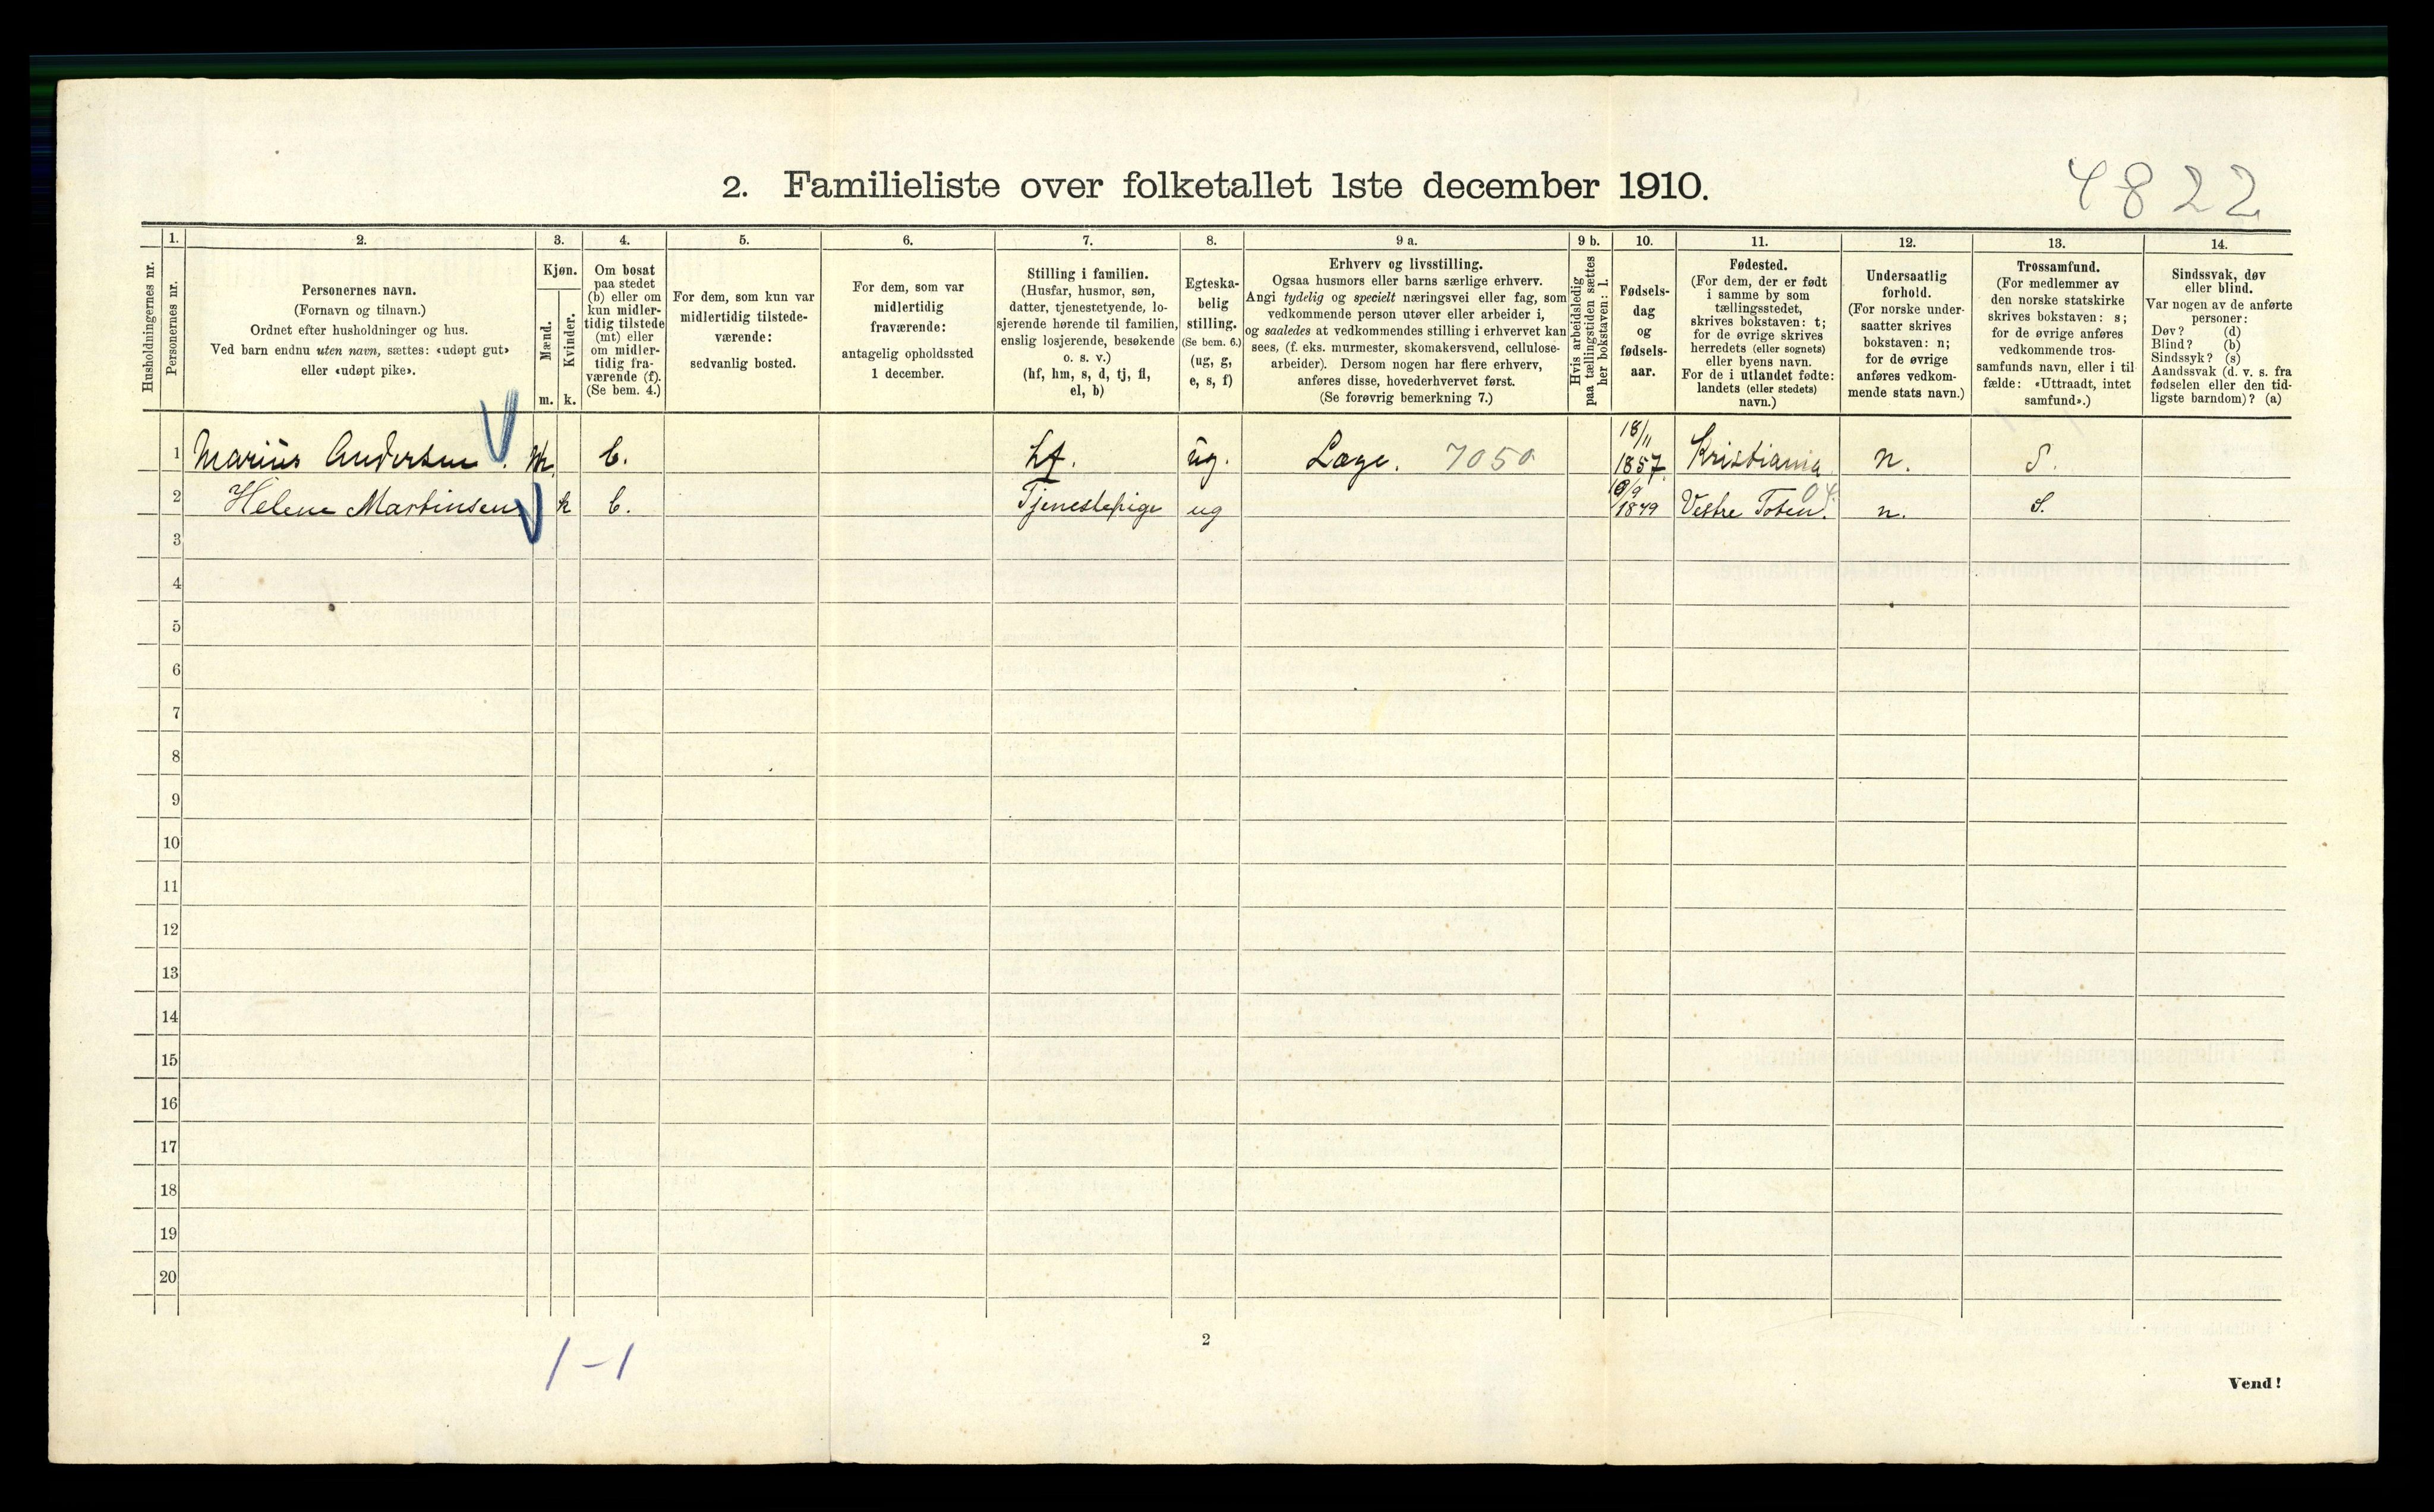 4822
2. Familieliste over folketallet 1ste december 1910.
Husholdningernes nr.
1.
Personernes nr.
2.
Personernes navn.
(Fornavn og tilnavn.)
Ordnet efter husholdninger og hus.
Ved barn endnu uten navn, sættes: «udøpt gut»
eller «udøpt pike».
3.
Kjøn.
Mænd.
Kvinder.
m. k.
4.
Om bosat
paa stedet
(b) eller om
kun midler-
tidig tilstede
(mt) eller
om midler-
tidig fra-
værende (f).
(Se bem. 4.)
5.
For dem, som kun var
midlertidig tilstede-
værende:
sedvanlig bosted.
6.
For dem, som var
midlertidig
fraværende:
antagelig opholdssted
1 december.
7.
Stilling i familien.
(Husfar, husmor, søn,
datter, tjenestetyende, lo-
sjerende hørende til familien,
enslig losjerende, besøkende
o. s. v.)
(hf, hm, s, d, tj, fl,
el, b)
8.
Egteska-
belig
stilling.
(Se bem. 6.)
(ug, g,
e, s, f)
9 a.
Erhverv og livsstilling.
Ogsaa husmors eller barns særlige erhverv.
Angi tydelig og specielt næringsvei eller fag, som
vedkommende person utøver eller arbeider i,
og saaledes at vedkommendes stilling i erhvervet kan
sees, (f. eks. murmester, skomakersvend, cellulose-
arbeider). Dersom nogen har flere erhverv,
anføres disse, hovederhvervet først.
(Se forøvrig bemerkning 7.)
9 b.
Hvis arbeidsledig
paa tællingstiden sættes
her bokstaven: l.
10.
Fødsels-
dag
og
fødsels-
aar.
11.
Fødested.
(For dem, der er født
i samme by som
tællingsstedet,
skrives bokstaven: t;
for de øvrige skrives
herredets (eller sognets)
eller byens navn.
For de i utlandet fødte:
landets (eller stedets)
navn.)
12.
Undersaatlig
forhold.
(For norske under-
saatter skrives
bokstaven: n;
for de øvrige
anføres vedkom-
mende stats navn.)
13.
Trossamfund.
(For medlemmer av
den norske statskirke
skrives bokstaven: s;
for de øvrige anføres
vedkommende tros-
samfunds navn, eller i til
fælde: «Uttraadt, intet
samfund».)
14.
Sindssvak, døv
eller blind.
Var nogen av de anførte
personer:
Døv? (d)
Blind? (b)
Sindssyk? (s)
Aandssvak (d. v. s. fra
fødselen eller den tid-
ligste barndom)? (a)
1 Marius Andersen. m. b. hf. ug. Læge. 7050 18/11 1857 Kristiania n. S.
2 Helene Martinsen k b. Tjenestepige ug 1849 Vestre Toten. 04 n. S.
3
4
5
6
7
8
9
10
11
12
13
14
15
16
17
18
19
20
1-1
2
Vend!